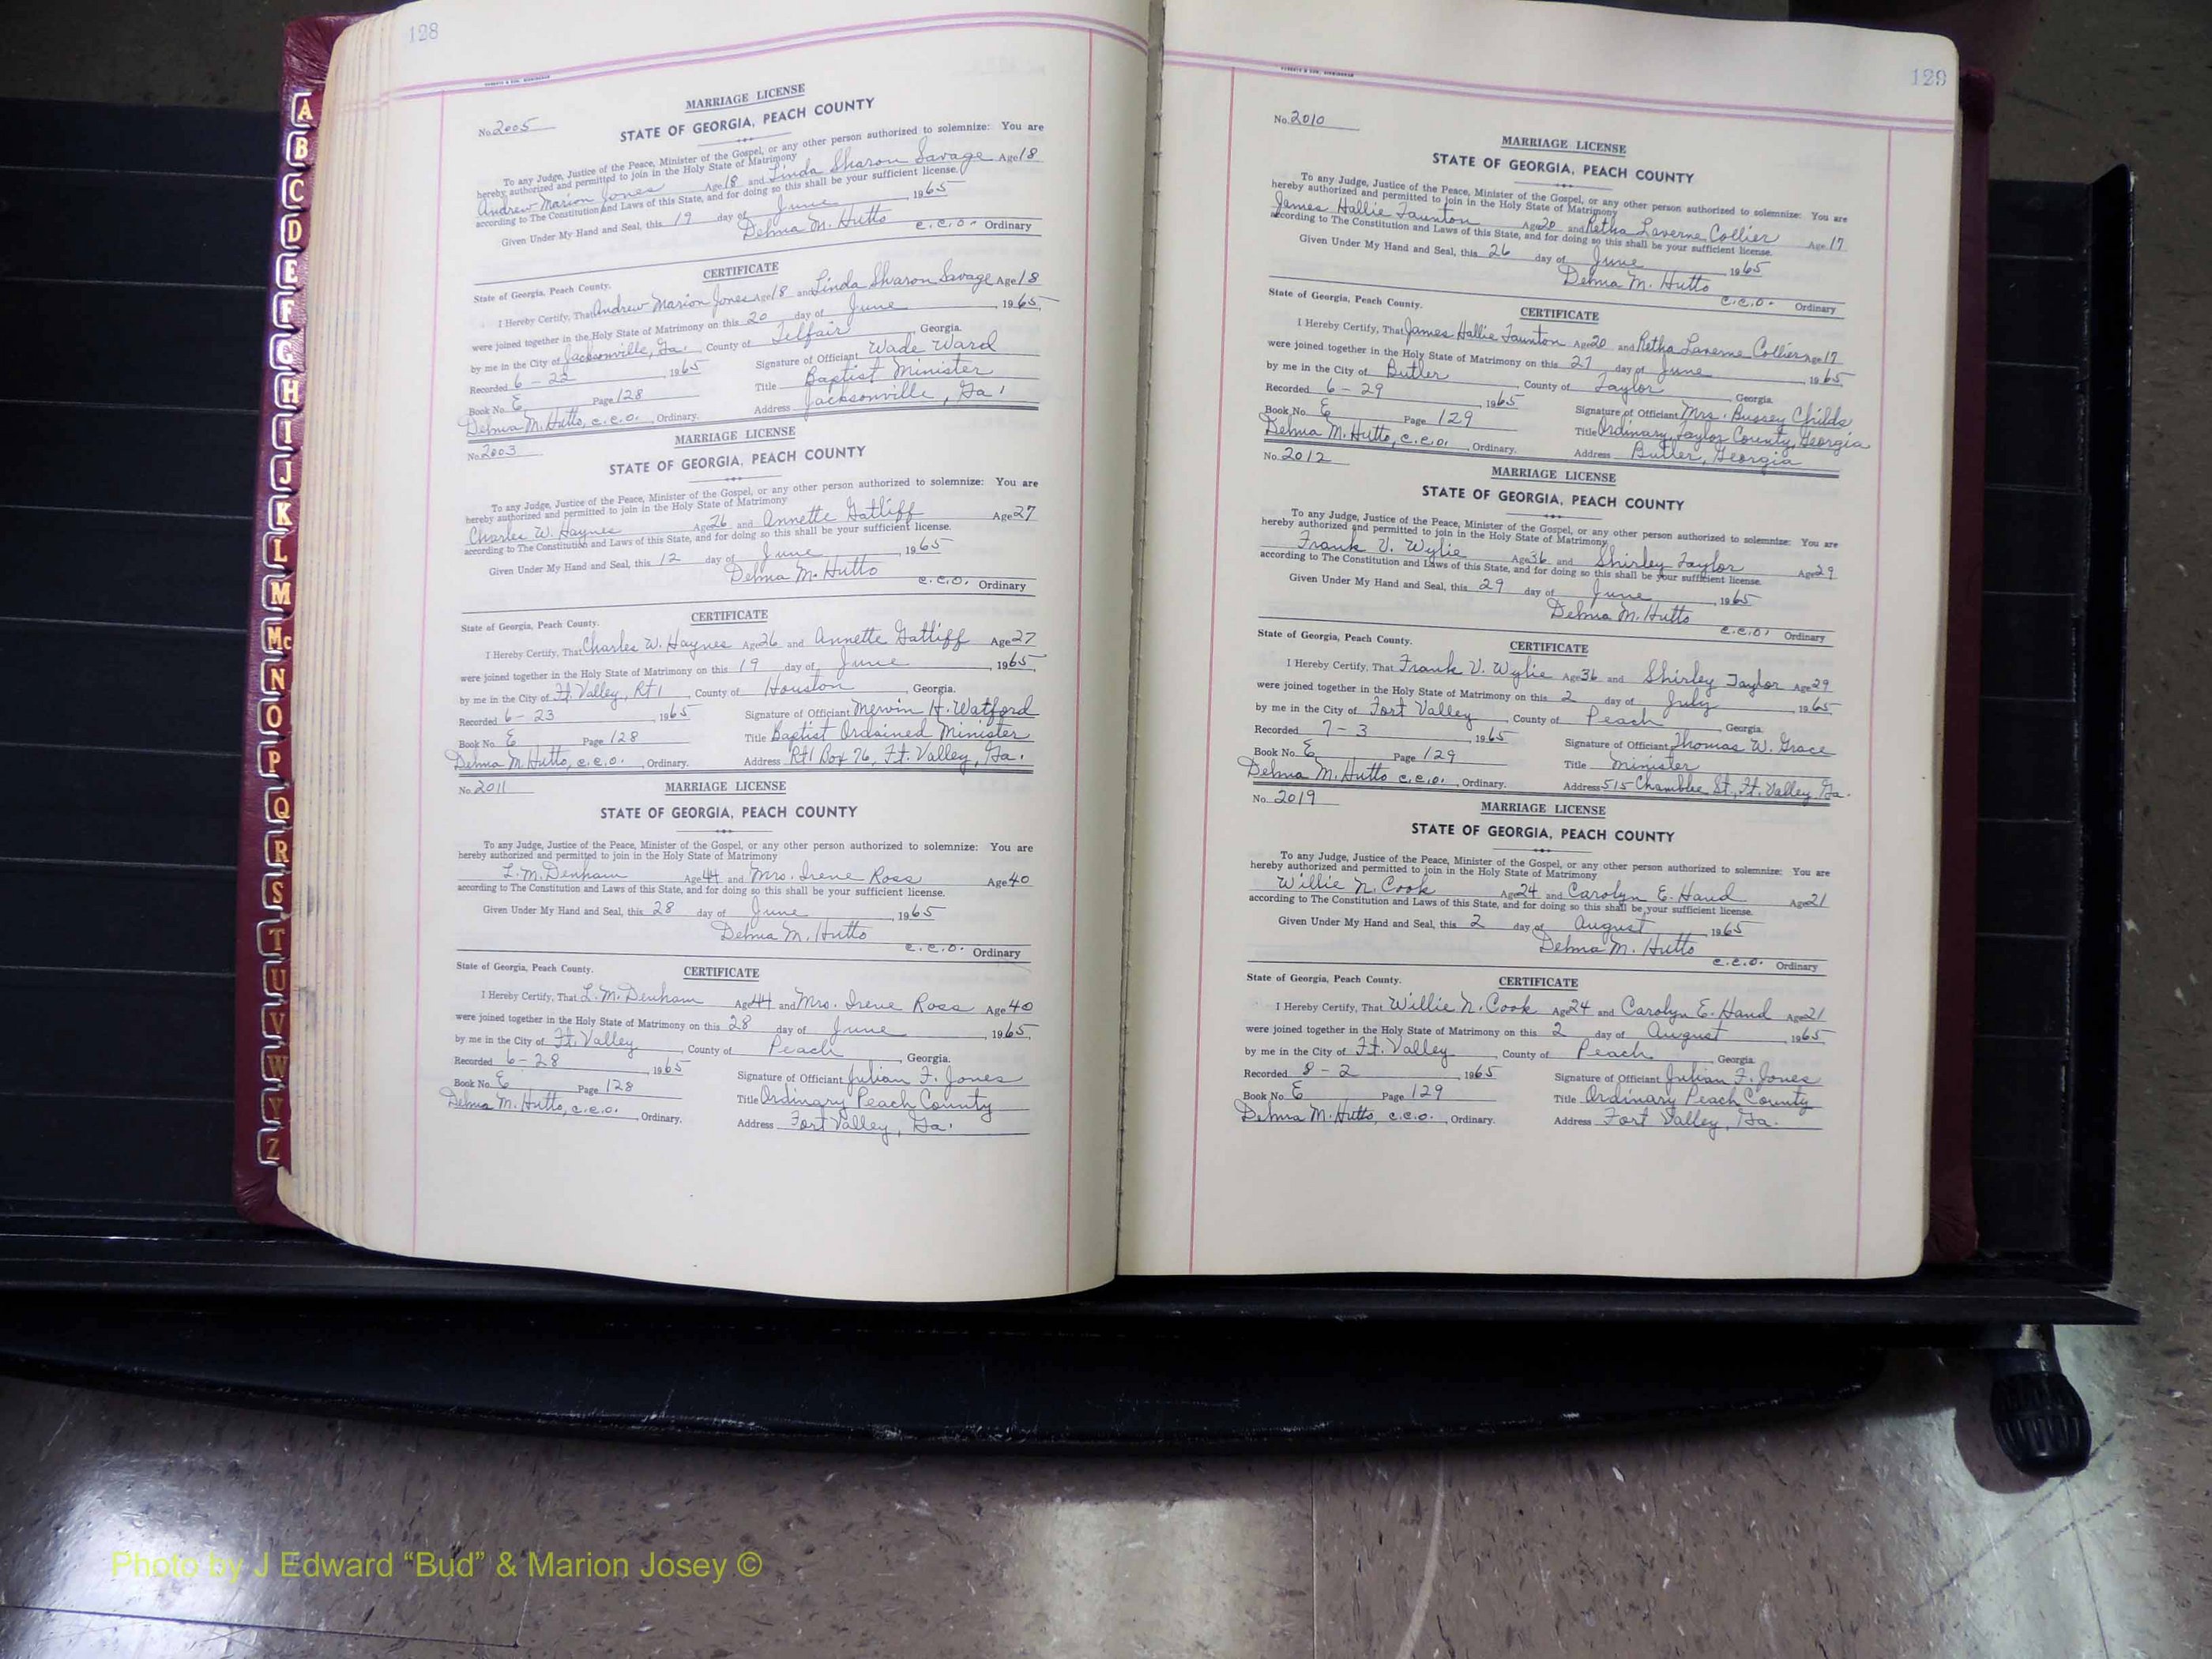 128
A
B
C
D
E
F
G
H
I
J
K
L
M
Mc
N
O
P
Q
R
S
T
U
V
W
Y
Z
MARRIAGE LICENSE
No. 2005
STATE OF GEORGIA, PEACH COUNTY
To any Judge, Justice of the Peace, Minister of the Gospel, or any other person authorized to solemnize: You are
hereby authorized and permitted to join in the Holy State of Matrimony
Andrew Marion Jones Age 18 and Linda Sharon Savage Age 18
according to The Constitution and Laws of this State, and for doing so this shall be your sufficient license.
Given Under My Hand and Seal, this 19 day of June 1965
Delma M. Hutto c.c.o. Ordinary
CERTIFICATE
State of Georgia, Peach County.
I Hereby Certify, That Andrew Marion Jones Age 18 and Linda Sharon Savage Age 18
were joined together in the Holy State of Matrimony on this 20 day of June, 1965,
by me in the City of Jacksonville, Ga., County of Telfair, Georgia.
Recorded 6-22 1965
Signature of Officiant Wade Ward
Title Baptist Minister
Book No. E Page 128
Address Jacksonville, Ga.
Delma M. Hutto, c.c.o., Ordinary.
No. 2003
MARRIAGE LICENSE
STATE OF GEORGIA, PEACH COUNTY
To any Judge, Justice of the Peace, Minister of the Gospel, or any other person authorized to solemnize: You are
hereby authorized and permitted to join in the Holy State of Matrimony
Charles W. Haynes Age 26 and Annette Gatliff Age 27
according to The Constitution and Laws of this State, and for doing so this shall be your sufficient license.
Given Under My Hand and Seal, this 12 day of June, 1965
Delma M. Hutto c.c.o. Ordinary
CERTIFICATE
State of Georgia, Peach County.
I Hereby Certify, That Charles W. Haynes Age 26 and Annette Gatliff Age 27
were joined together in the Holy State of Matrimony on this 19 day of June, 1965,
by me in the City of Ft. Valley, Rt 1, County of Houston, Georgia.
Recorded 6-23, 1965
Signature of Officiant Mervin H. Watford
Book No. E Page 128
Title Baptist Ordained Minister
Delma M. Hutto, c.c.o., Ordinary.
Address Rt 1 Box 76, Ft. Valley, Ga.
No. 2011
MARRIAGE LICENSE
STATE OF GEORGIA, PEACH COUNTY
To any Judge, Justice of the Peace, Minister of the Gospel, or any other person authorized to solemnize: You are
hereby authorized and permitted to join in the Holy State of Matrimony
L. M. Denham Age 44 and Mrs. Irene Ross Age 40
according to The Constitution and Laws of this State, and for doing so this shall be your sufficient license.
Given Under My Hand and Seal, this 28 day of June, 1965
Delma M. Hutto c.c.o. Ordinary
State of Georgia, Peach County. CERTIFICATE
I Hereby Certify, That L. M. Denham Age 44 and Mrs. Irene Ross Age 40
were joined together in the Holy State of Matrimony on this 28 day of June, 1965,
by me in the City of Ft. Valley, County of Peach, Georgia.
Recorded 6-28, 1965
Signature of Officiant Julian F. Jones
Book No. E Page 128
Title Ordinary Peach County
Delma M. Hutto, c.c.o., Ordinary.
Address Fort Valley, Ga.
129
No. 2010
MARRIAGE LICENSE
STATE OF GEORGIA, PEACH COUNTY
To any Judge, Justice of the Peace, Minister of the Gospel, or any other person authorized to solemnize: You are
hereby authorized and permitted to join in the Holy State of Matrimony
James Hallie Taunton Age 20 and Retha Laverne Collier Age 17
according to The Constitution and Laws of this State, and for doing so this shall be your sufficient license.
Given Under My Hand and Seal, this 26 day of June, 1965
Delma M. Hutto c.c.o. Ordinary
State of Georgia, Peach County. CERTIFICATE
I Hereby Certify, That James Hallie Taunton Age 20 and Retha Laverne Collier Age 17
were joined together in the Holy State of Matrimony on this 27 day of June, 1965
by me in the City of Butler, County of Taylor, Georgia.
Recorded 6-29, 1965
Signature of Officiant Mrs. Bussey Childs
Book No. E Page 129
Title Ordinary, Taylor County, Georgia
Delma M. Hutto, c.c.o., Ordinary.
Address Butler, Georgia
No. 2012
MARRIAGE LICENSE
STATE OF GEORGIA, PEACH COUNTY
To any Judge, Justice of the Peace, Minister of the Gospel, or any other person authorized to solemnize: You are
hereby authorized and permitted to join in the Holy State of Matrimony
Frank V. Wylie Age 36 and Shirley Taylor Age 29
according to The Constitution and Laws of this State, and for doing so this shall be your sufficient license.
Given Under My Hand and Seal, this 29 day of June, 1965
Delma M. Hutto c.c.o. Ordinary
State of Georgia, Peach County. CERTIFICATE
I Hereby Certify, That Frank V. Wylie Age 36 and Shirley Taylor Age 29
were joined together in the Holy State of Matrimony on this 2 day of July, 1965
by me in the City of Fort Valley, County of Peach, Georgia.
Recorded 7-3, 1965
Signature of Officiant Thomas W. Grace
Book No. E Page 129
Title Minister
Delma M. Hutto c.c.o., Ordinary.
Address 515 Chamblee St., Ft. Valley, Ga.
No. 2019
MARRIAGE LICENSE
STATE OF GEORGIA, PEACH COUNTY
To any Judge, Justice of the Peace, Minister of the Gospel, or any other person authorized to solemnize: You are
hereby authorized and permitted to join in the Holy State of Matrimony
Willie N. Cook Age 24 and Carolyn E. Hand Age 21
according to The Constitution and Laws of this State, and for doing so this shall be your sufficient license.
Given Under My Hand and Seal, this 2 day of August, 1965
Delma M. Hutto c.c.o. Ordinary
State of Georgia, Peach County. CERTIFICATE
I Hereby Certify, That Willie N. Cook Age 24 and Carolyn E. Hand Age 21
were joined together in the Holy State of Matrimony on this 2 day of August, 1965
by me in the City of Ft. Valley, County of Peach, Georgia
Recorded 8-2, 1965
Signature of Officiant Julian F. Jones
Book No. E Page 129
Title Ordinary Peach County
Delma M. Hutto, c.c.o., Ordinary.
Address Fort Valley, Ga.
Photo by J Edward “Bud” & Marion Josey ©